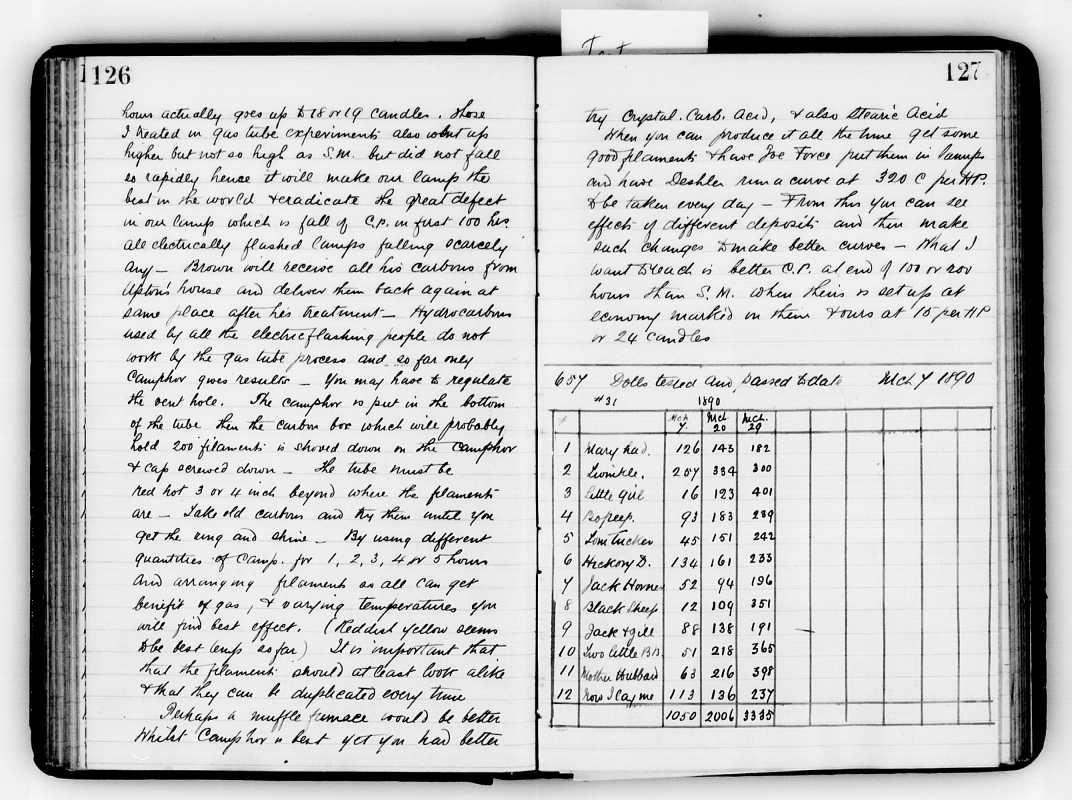 126
hours actually goes up to 18 or 19 candles. Those
I treated in gas tube experiments also went up
higher but not so high as S.M. but did not fall
so rapidly hence it will make our lamp the
best in the world & eradicate the great defect
in our lamps which is fall of C.P. in first 100 hrs.
all electrically flashed lamps falling scarcely
any — Brown will receive all his carbons from
Upton's house and deliver them back again at
same place after his treatment — Hydrocarbons
used by all the electric flashing people do not
work by the gas tube process and so far only
Camphor gives results — You may have to regulate
the vent hole. The camphor is put in the bottom
of the tube then the carbon box which will probably
hold 200 filaments is shoved down on the camphor
& cap screwed down — The tube must be
red hot 3 or 4 inch beyond where the filaments
are — Take old carbons and try them until you
get the ring and shine — By using different
quantities of Camp. for 1, 2, 3, 4 or 5 hours
and arranging filaments so all can get
benefit of gas, & varying temperatures you
will find best effect. (Reddish yellow seems
to be best temp so far) It is important that
that the filaments should at least look alike
& that they can be duplicated every time
Perhaps a muffle furnace would be better
Whilst Camphor is best yet you had better
127
try Crystal. Carb. Acid, & also Stearic Acid
When you can produce it all the time get some
good filaments & have Joe Force put them in lamps
and have Deshler run a curve at 320 C per HP.
to be taken every day — From this you can see
effects of different deposits and then make
such changes to make better curves — What I
want to reach is better C.P. at end of 100 or 200
hours than S.M. when theirs is set up at
economy marked on them & ours at 15 per HP
or 24 candles
657 Dolls tested and passed to date Mch 7 1890
#31 1890
# Mch 7. Mch 20 Mch. 29
1 Mary had. 126 143 182
2 Twinkle. 257 334 300
3 little Girl 16 123 401
4 Bo peep. 93 183 289
5 Tom Tucker 45 151 242
6 Hickory D. 134 161 233
7 Jack Horner 52 94 196
8 Black Sheep 12 109 351
9 Jack & gill 88 138 191
10 Two little B.B. 51 218 365
11 Mother Hubbard 63 216 398
12 Now I lay me 113 136 237
1050 2006 3385